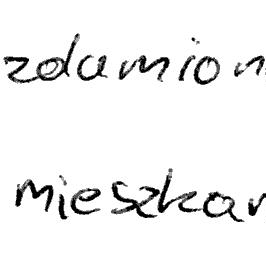 zdamion
mieszkar